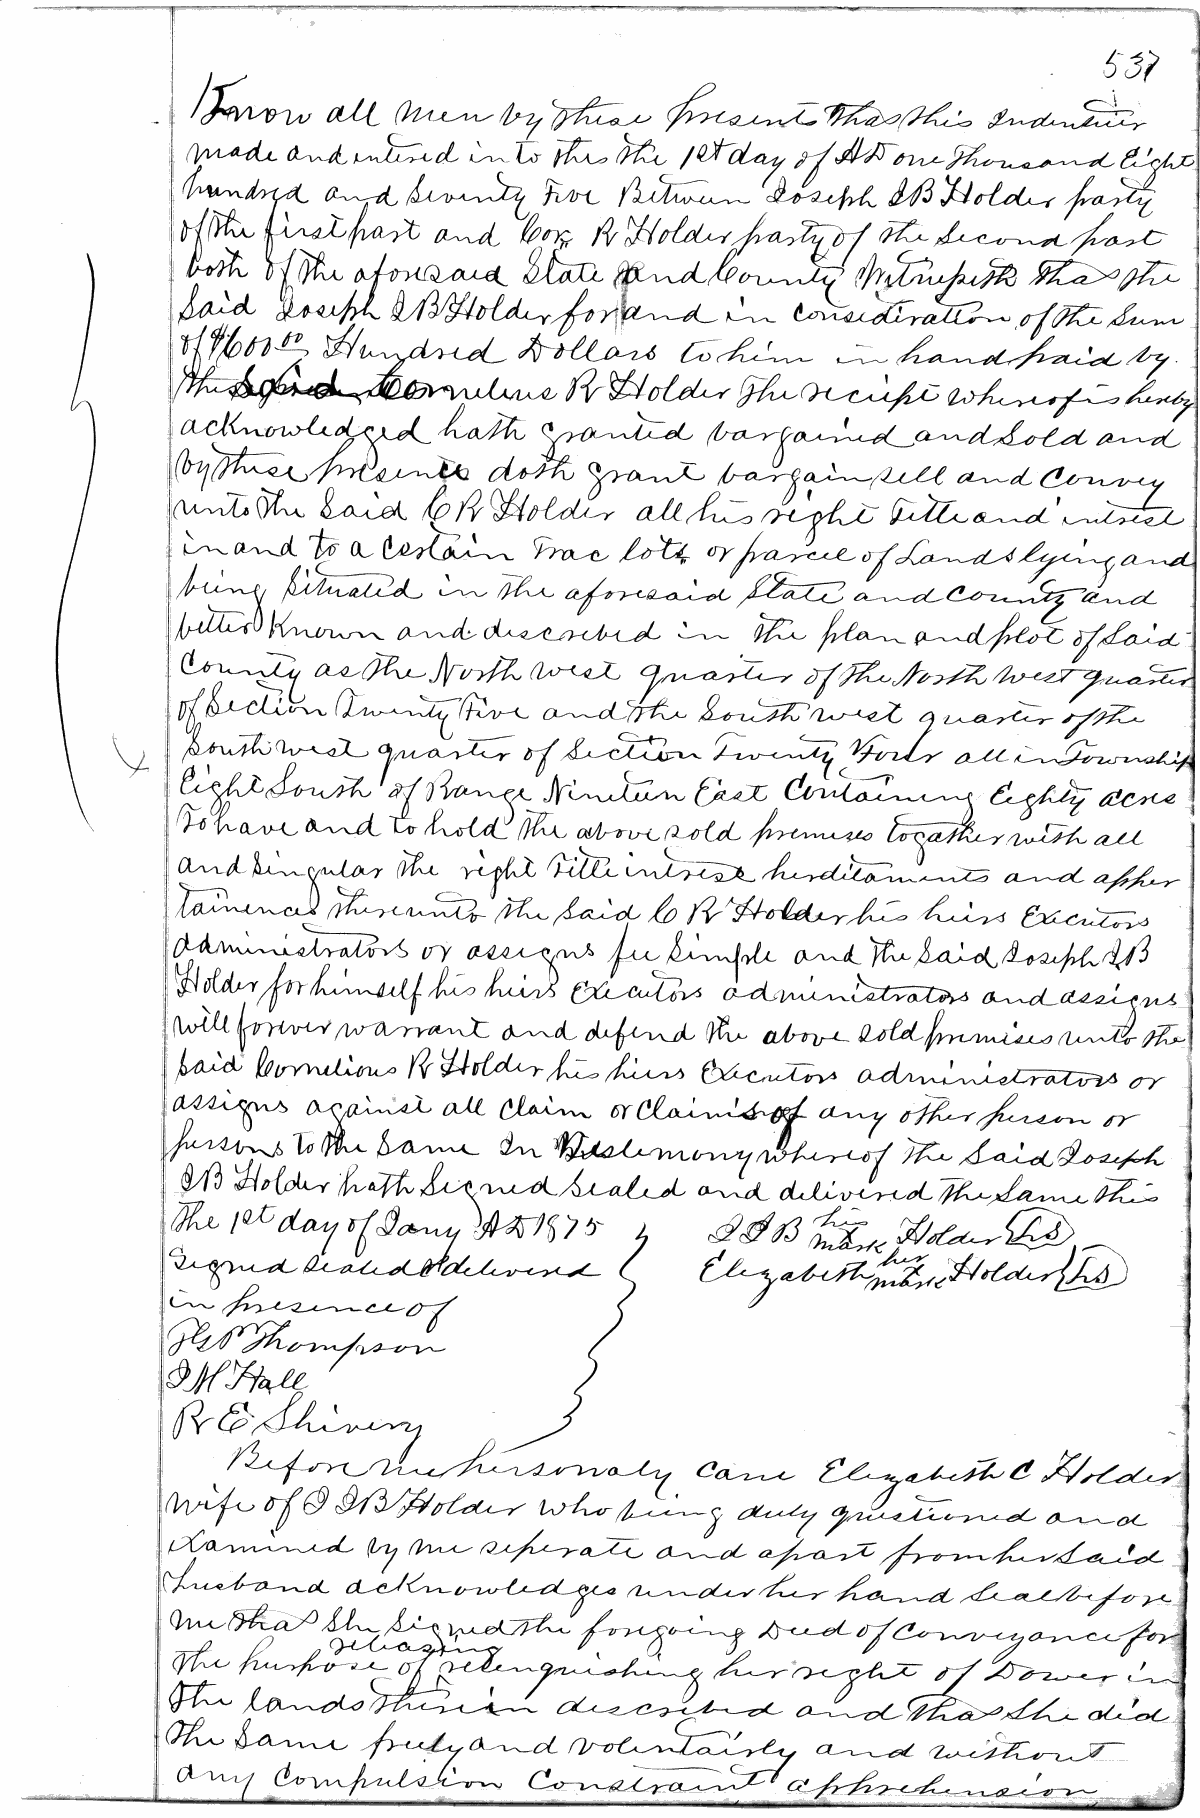 537
Know all men by these presents that this Indentuer
made and entered into this the 1st day of AD one Thousand Eight
hundred and Seventy Five Between Joseph J B Holder party
of the first part and Cor. R Holder party of the Second part
both of the aforesaid State and County Witnesseth that the
Said Joseph J B Holder for and in consideration of the Sum
of $600.00 Hundred Dollars to him in hand paid by
the said Cornelius R Holder the reciept whereof is herby
acknowledged hath granted bargained and Sold and
by these presents doth grant bargain sell and Convey
unto the Said C R Holder all his right Title and intrest
in and to a certain Trac lots or parcel of Lands lying and
being Situated in the aforesaid State and County and
better Known and discribed in the plan and plot of Said
County as the North west quarter of the North west quarter
of Section Twenty Five and the South west quarter of the
South west quarter of Section Twenty Four all in Township
Eight South of Range Nineteen East Containing Eighty acres
To have and to hold the above sold premises togather with all
and Singular the right Title intrest herditaments and apper
tainences thereunto the Said C R Holder his heirs Executors
administrators or assigns fee Simple and the Said Joseph J B
Holder for himself his heirs Executors administrators and assigns
will forever warrant and defend the above sold premises unto the
Said Cornelious R Holder his heirs Executors administrators or
assigns against all claim or Claims of any other person or
persons to the Same In Testemony whereof the Said Joseph
J B Holder hath Signed Sealed and delivered the Same this
the 1st day of Jany AD 1875
J J B his mark Holder LS
Signed Sealed & delivered
Elizabeth her mark Holder LS
in presence of
Thompson
J M Hall
R E Shivery
Before me personaly came Elizabeth C Holder
wife of J J B Holder who being duly questioned and
Examined by me seperate and apart from her Said
husband acknowledges under her hand Seal before
me that She Signed the foregoing Deed of Conveyance for
releasing
the purpose of relenquishing her right of Dower in
the lands therein discribed and that She did
the Same freely and volentairly and without
any Compulsion Constraint apprehension